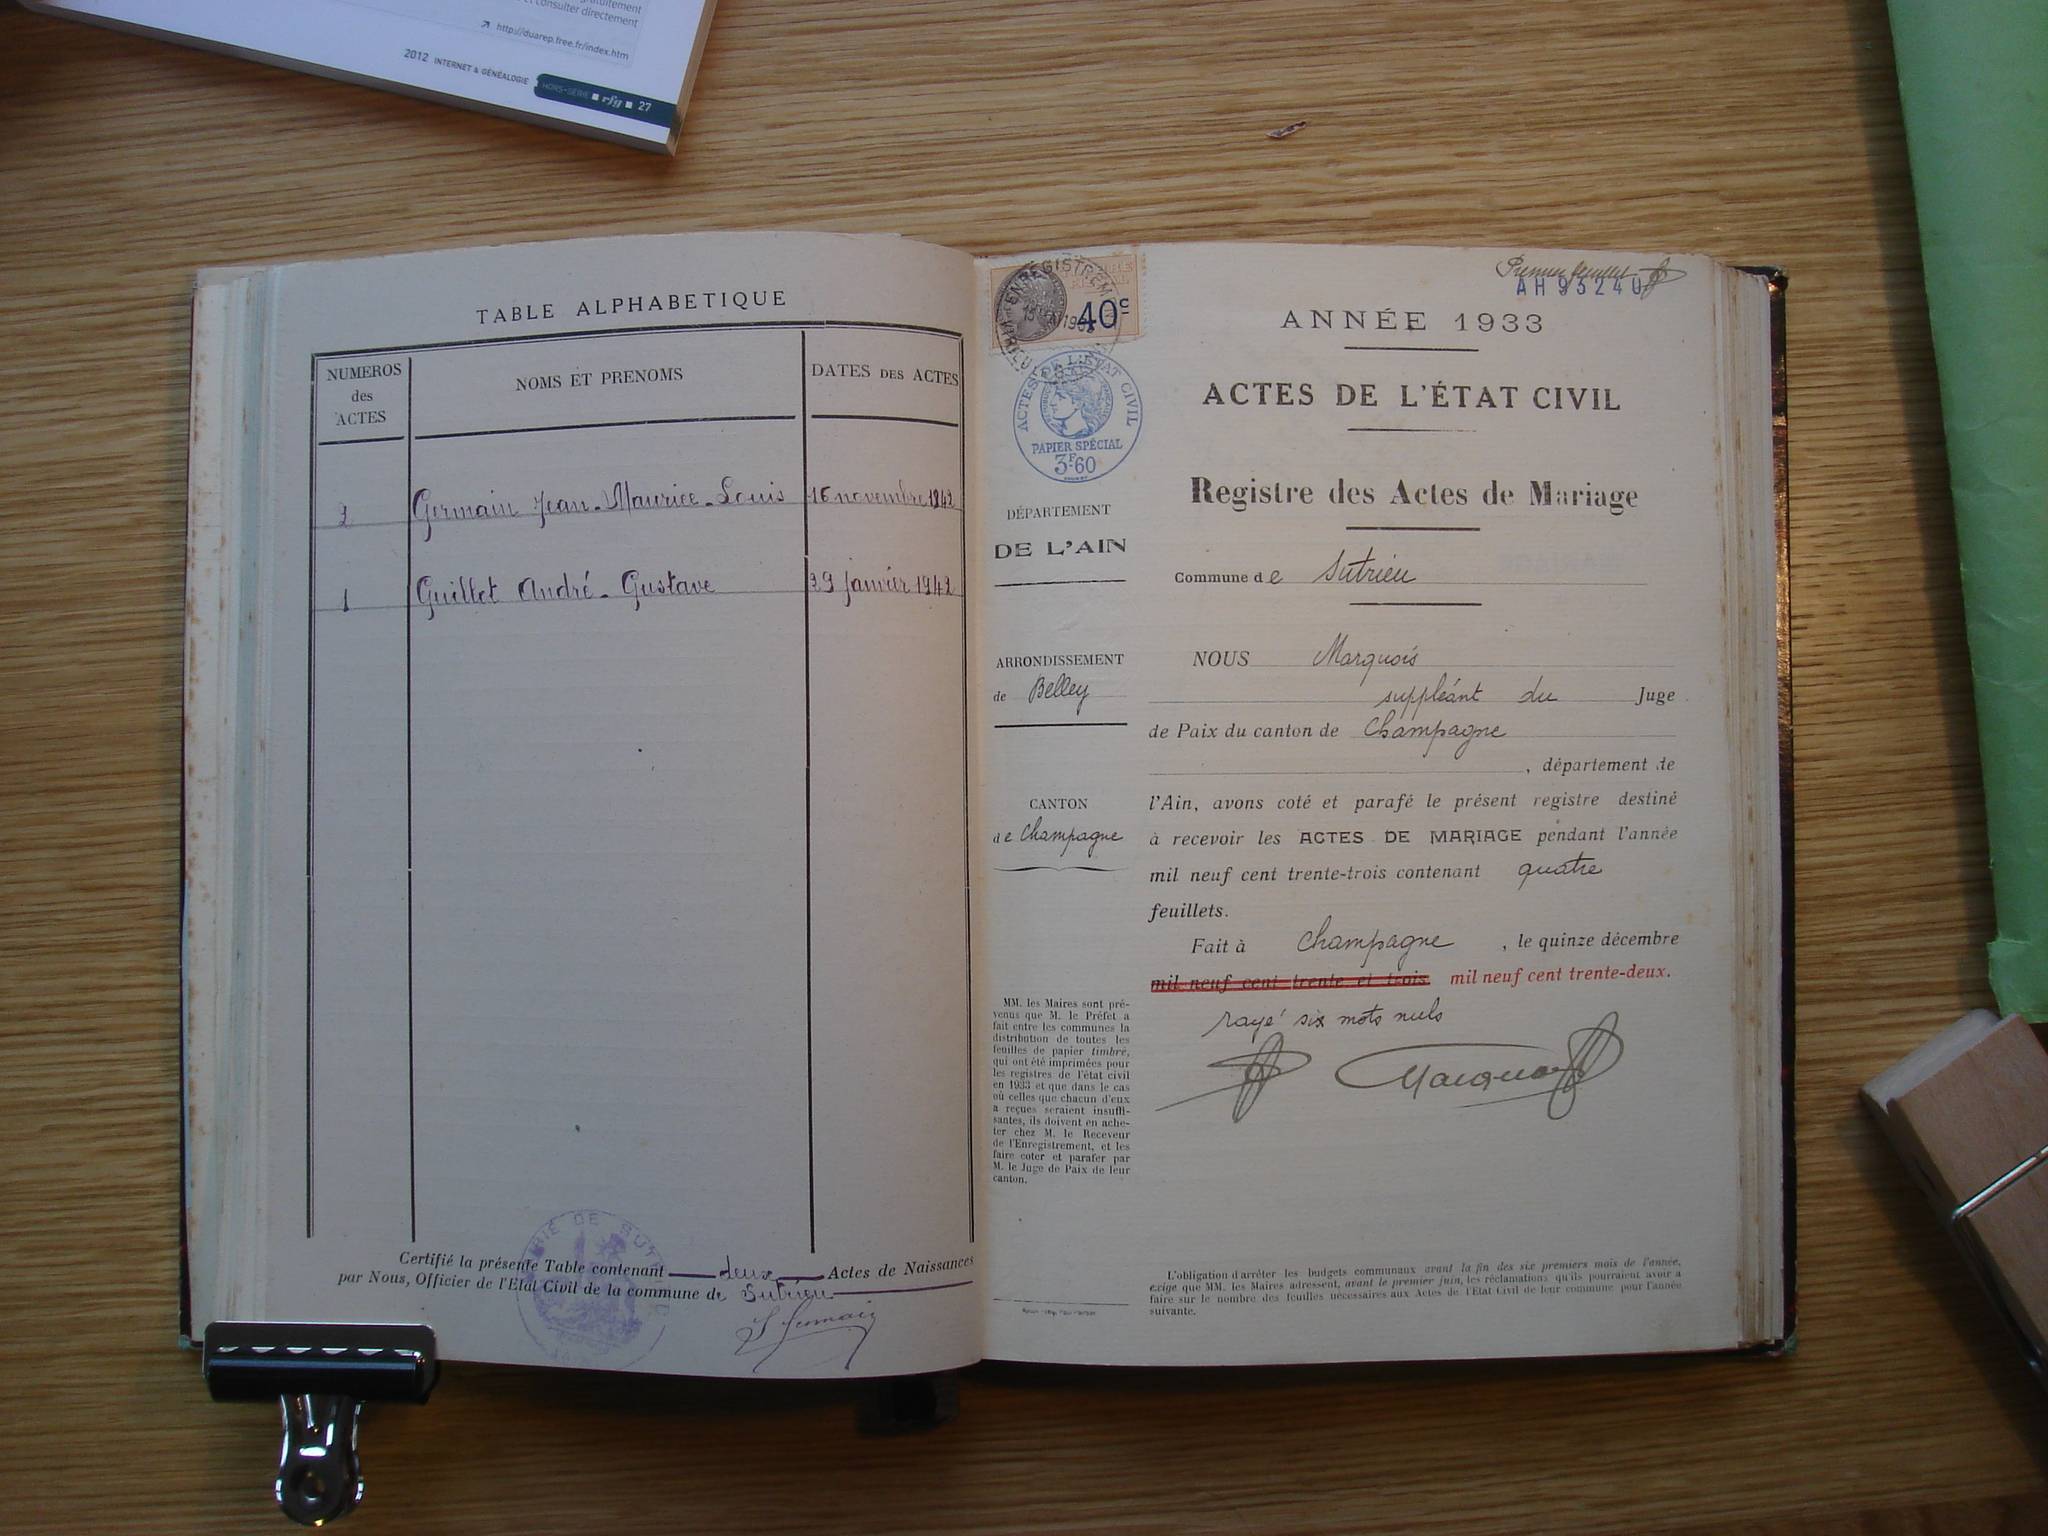 gratuitement
et consulter directement
http://duarep.free.fr/index.htm
2012 INTERNET & GÉNÉALOGIE HORS-SÉRIE rfg 27
TABLE ALPHABETIQUE
NUMEROS des ACTES
NOMS ET PRENOMS
DATES DES ACTES
2 Germain Jean-Maurice-Louis 16 novembre 1942
1 Guillet André-Gustave 29 janvier 1942
MAIRIE DE SUTRIEU
Certifié la présente Table contenant deux Actes de Naissances
par Nous, Officier de l'Etat Civil de la commune de Sutrieu
Germain
ENREGISTREM
40c
ACTES DE L'ÉTAT CIVIL
PAPIER SPÉCIAL
3F.60
DÉPARTEMENT
DE L'AIN
ARRONDISSEMENT
de Belley
CANTON
de Champagne
MM. les Maires sont pré-
venus que M. le Préfet a
fait entre les communes la
distribution de toutes les
feuilles de papier timbré,
qui ont été imprimées pour
les registres de l'état civil
en 1933 et que dans le cas
où celles que chacun d'eux
a reçues seraient insuffi-
santes, ils doivent en ache-
ter chez M. le Receveur
de l'Enregistrement, et les
faire coter et parafer par
M. le Juge de Paix de leur
canton.
Premier feuillet
AH 93240
ANNÉE 1933
ACTES DE L'ÉTAT CIVIL
Registre des Actes de Mariage
Commune de Sutrieu
NOUS Marquois
suppléant du Juge
de Paix du canton de Champagne
, département de
l'Ain, avons coté et parafé le présent registre destiné
à recevoir les ACTES DE MARIAGE pendant l'année
mil neuf cent trente-trois contenant quatre
feuillets.
Fait à Champagne, le quinze décembre
mil neuf cent trente et trois mil neuf cent trente-deux.
rayé six mots nuls
Marquois
L'obligation d'arrêter les budgets communaux avant la fin des six premiers mois de l'année,
exige que MM. les Maires adressent, avant le premier juin, les réclamations qu'ils pourraient avoir à
faire sur le nombre des feuilles nécessaires aux Actes de l'Etat Civil de leur commune pour l'année
suivante.